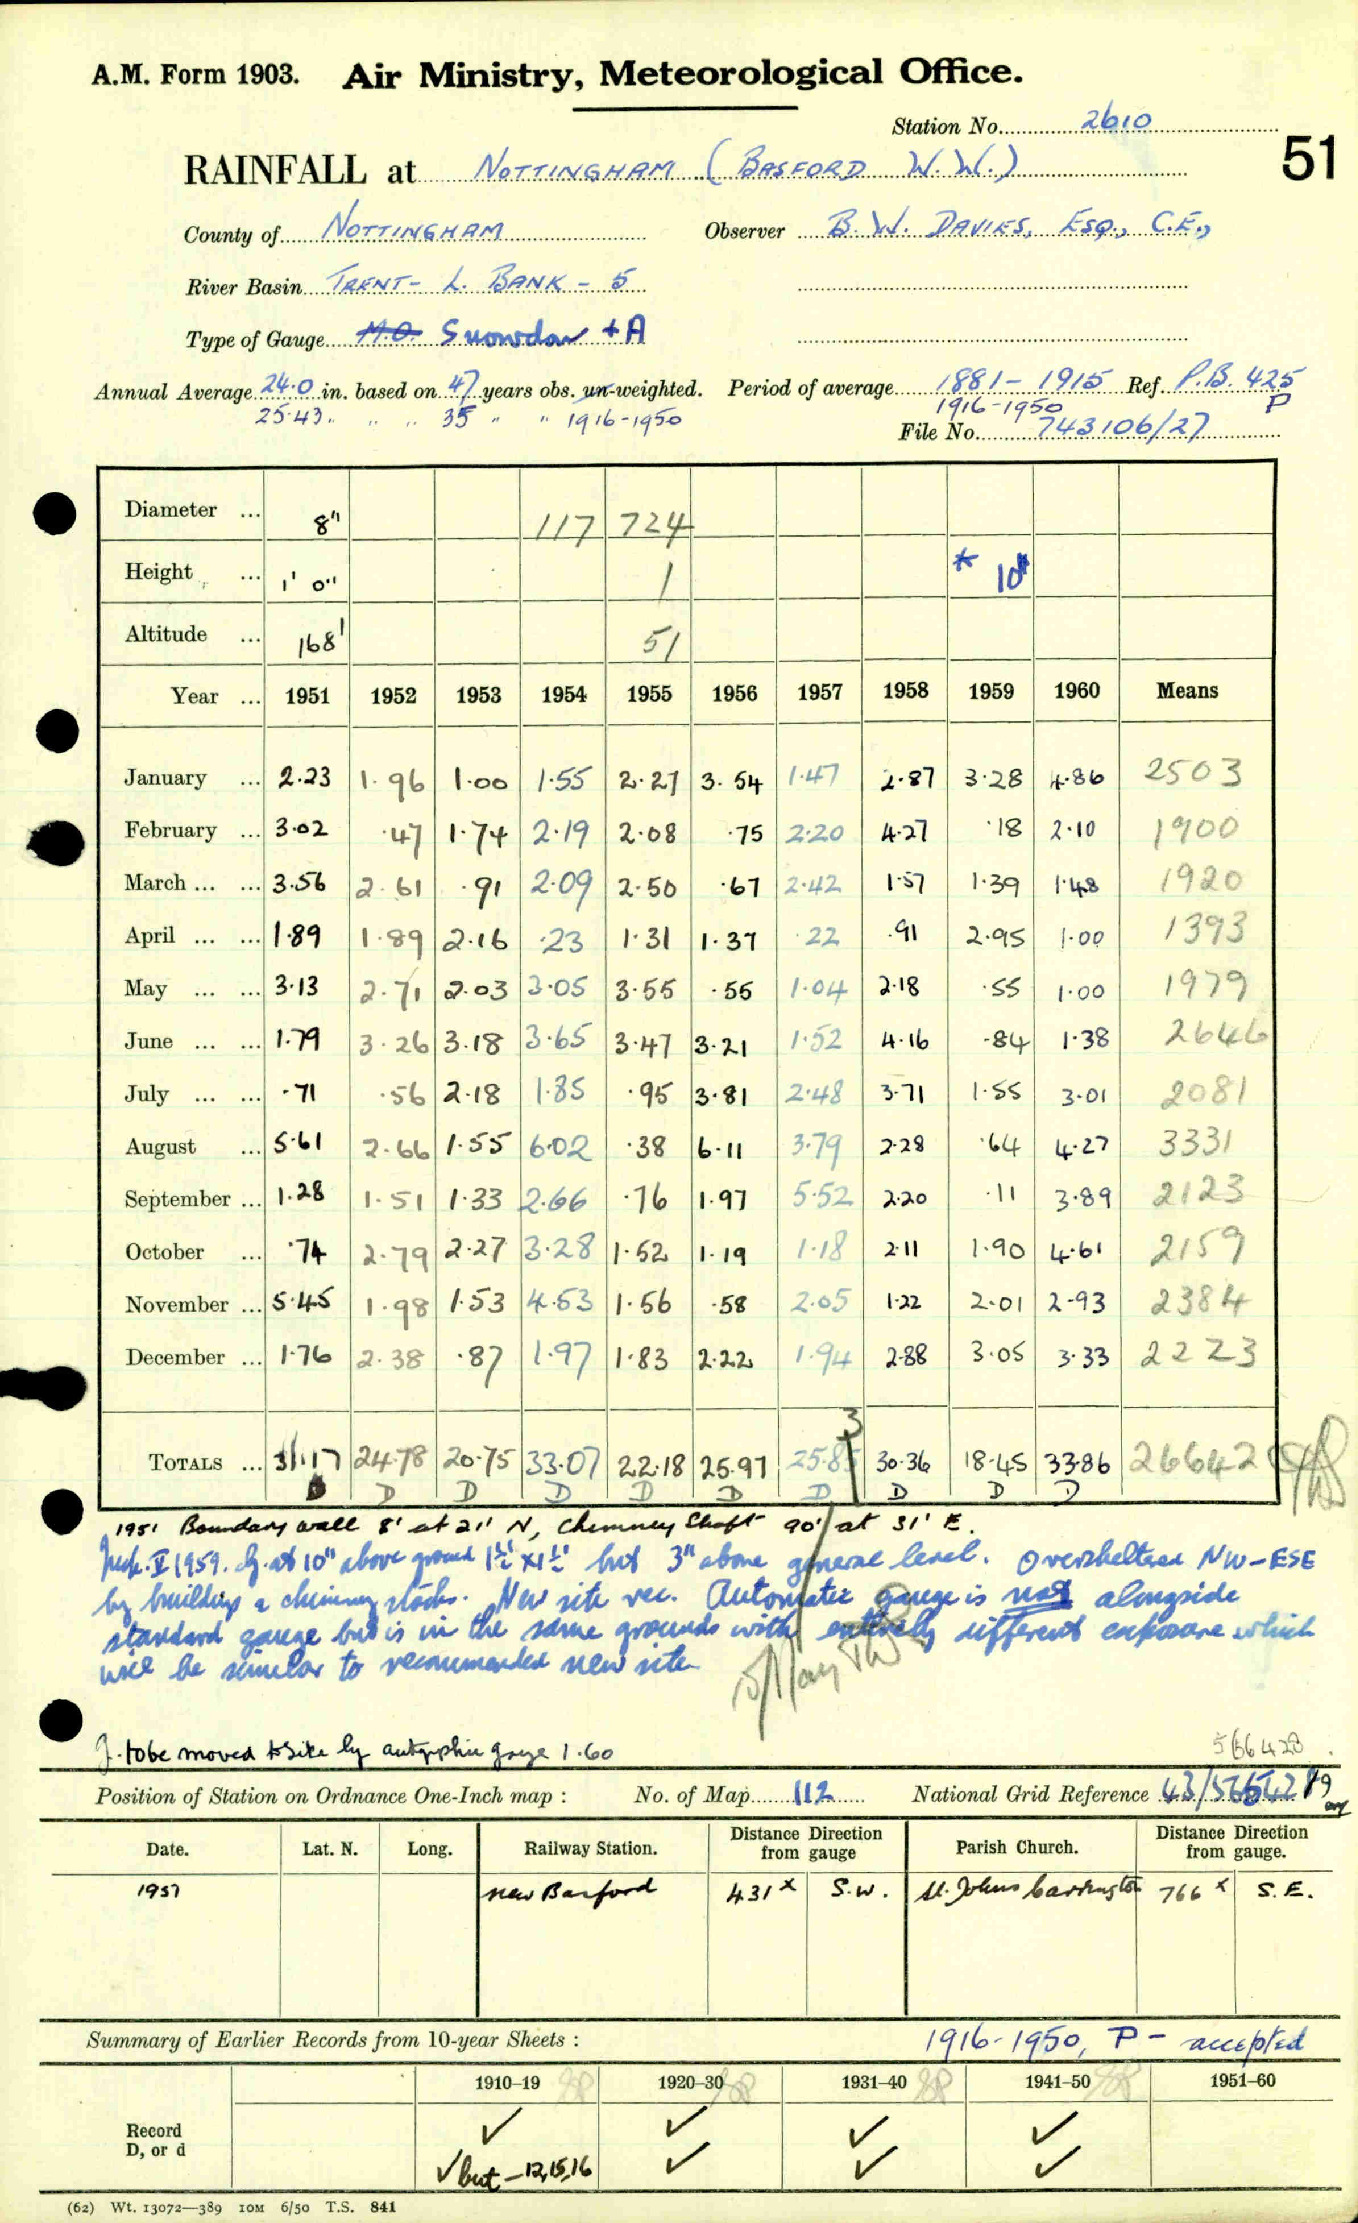 A.M. Form 1903. Air Ministry, Meteorological Office.
Station No. 2610
51
RAINFALL at NOTTINGHAM (BASFORD W.W.)
County of NOTTINGHAM Observer B.W. DAVIES, ESQ., C.E.,
River Basin TRENT - L. BANK - 5
Type of Gauge M.O. Snowdon + A
Annual Average 24.0 in. based on 47 years obs. un-weighted. Period of average 1881 - 1915 Ref. P.B. 425
25.43 " " " 35 " " 1916-1950 1916-1950 P
File No. 743106/27
Diameter ... 8" 117 724
Height ... 1' 0" 1 * 10"
Altitude ... 168' 51
Year ... 1951 1952 1953 1954 1955 1956 1957 1958 1959 1960 Means
January ... 2.23 1.96 1.00 1.55 2.27 3.54 1.47 2.87 3.28 4.86 2503
February ... 3.02 .47 1.74 2.19 2.08 .75 2.20 4.27 .18 2.10 1900
March ... ... 3.56 2.61 .91 2.09 2.50 .67 2.42 1.57 1.39 1.48 1920
April ... ... 1.89 1.89 2.16 .23 1.31 1.37 .22 .91 2.95 1.00 1393
May ... ... 3.13 2.71 2.03 3.05 3.55 .55 1.04 2.18 .55 1.00 1979
June ... ... 1.79 3.26 3.18 3.65 3.47 3.21 1.52 4.16 .84 1.38 2646
July ... ... .71 .56 2.18 1.85 .95 3.81 2.48 3.71 1.55 3.01 2081
August ... 5.61 2.66 1.55 6.02 .38 6.11 3.79 2.28 .64 4.27 3331
September ... 1.28 1.51 1.33 2.66 .76 1.97 5.52 2.20 .11 3.89 2123
October ... .74 2.79 2.27 3.28 1.52 1.19 1.18 2.11 1.90 4.61 2159
November ... 5.45 1.98 1.53 4.53 1.56 .58 2.05 1.22 2.01 2.93 2384
December ... 1.76 2.38 .87 1.97 1.83 2.22 1.94 2.88 3.05 3.33 2223
3
TOTALS ... 31.17 24.78 20.75 33.07 22.18 25.97 25.85 30.36 18.45 33.86 26642
D D D D D D D D D D
1951 Boundary wall 8' at 21' N, Chimney Shaft 90' at 31' E.
Insp. II 1959. g. at 10" above ground 1½' x 1½' but 3" above general level. Oversheltered NW-ESE
by buildings & chimney stacks. New site rec. Automatic gauge is not alongside
standard gauge but is in the same grounds with entirely different exposure which
will be similar to recommended new site
g. to be moved to site by autographic gauge 1.60
566428
Position of Station on Ordnance One-Inch map : No. of Map 112 National Grid Reference 43/
Date. Lat. N. Long. Railway Station. Distance from gauge Direction Parish Church. Distance from gauge. Direction
1951 New Basford 431 x S.W. St. Johns Carrington 766 x S.E.
Summary of Earlier Records from 10-year Sheets : 1916-1950, P - accepted
1910–19 1920–30 1931–40 1941–50 1951–60
Record ✓ ✓ ✓ ✓
D, or d ✓ but - 12,15,16 ✓ ✓ ✓
(62) Wt. 13072—389 10M 6/50 T.S. 841